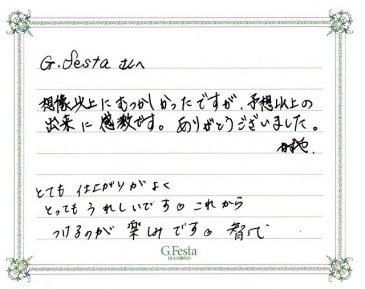 G.Festa さんへ
想像以上にむつかしかったですが、予想以上の
出来に感激です。ありがとうございました。
とても仕上がりがよく
とってもうれしいです。これから
つけるのが楽しみです。智代
G.Festa
DIAMOND